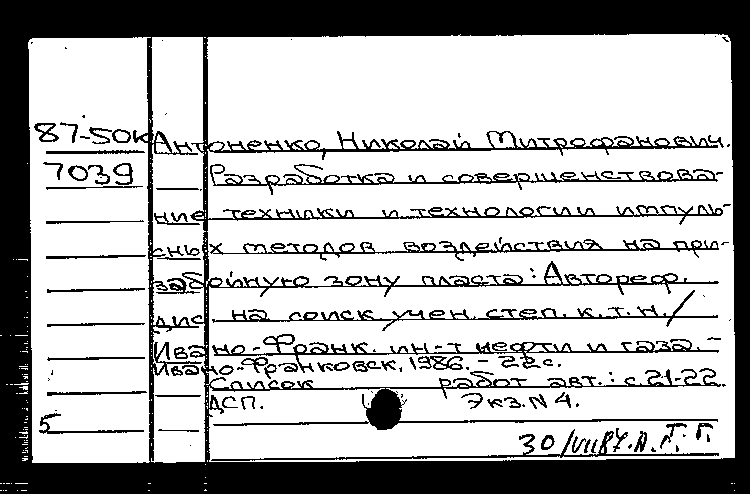 87-50к Антоненко, Николай Митрофанович.
7039 Разработка и совершенствова-
ние техники и технологии импуль-
сных методов воздействия на при-
забойную зону пласта: Автореф.
дис. на соиск. учен. степ. к.т.н./
Ивано-Франк. ин-т нефти и газа. –
Ивано-Франковск, 1986. – 22 с.
Список работ авт.: с. 21-22.
ДСП. Экз. N 4.
5
30/VII 87.